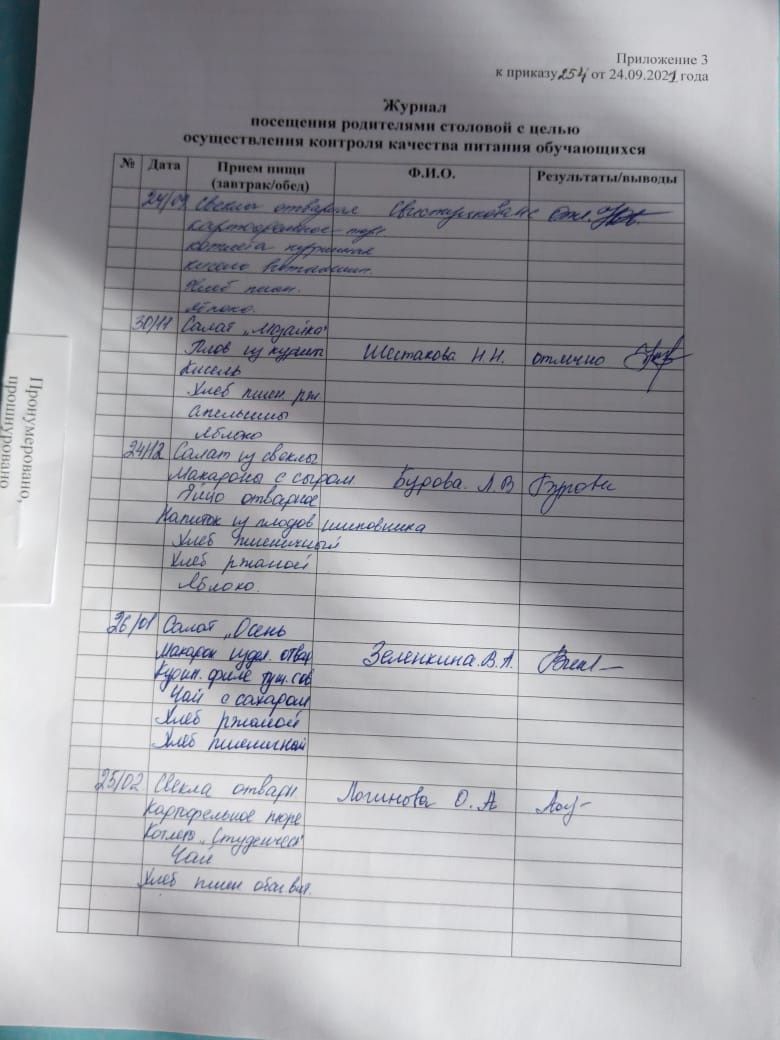 Приложение 3
к приказу 254 от 24.09.2021 года
Журнал
посещения родителями столовой с целью
осуществления контроля качества питания обучающихся
№ Дата Прием пищи (завтрак/обед) Ф.И.О. Результаты/выводы
24/09 Свекла отварная
картофельное пюре
котлета куриная
Хлеб пшен.
яблоко.
30/11 Салат „Мозайка"
Плов из курицы Шестакова Н.Н. отлично
Кисель
Хлеб пшен. рж
Апельсины
Яблоко
24/12 Салат из свеклы
Макароны с сыром Бурова. Л.В
Яйцо отварное
Напиток из плодов шиповника
Хлеб пшеничный
Хлеб ржаной
Яблоко.
26/01 Салат „Осень
Макарон издел. отвар Зеленкина.В.А.
Курин. филе туш. сов
Чай с сахаром
Хлеб ржаной
Хлеб пшеничный
25/02 Свекла отварн. Логинова О.А
Картофельное пюре
Котлет „Студенческ"
Чай
Хлеб пшен
Пронумеровано,
прошнуровано